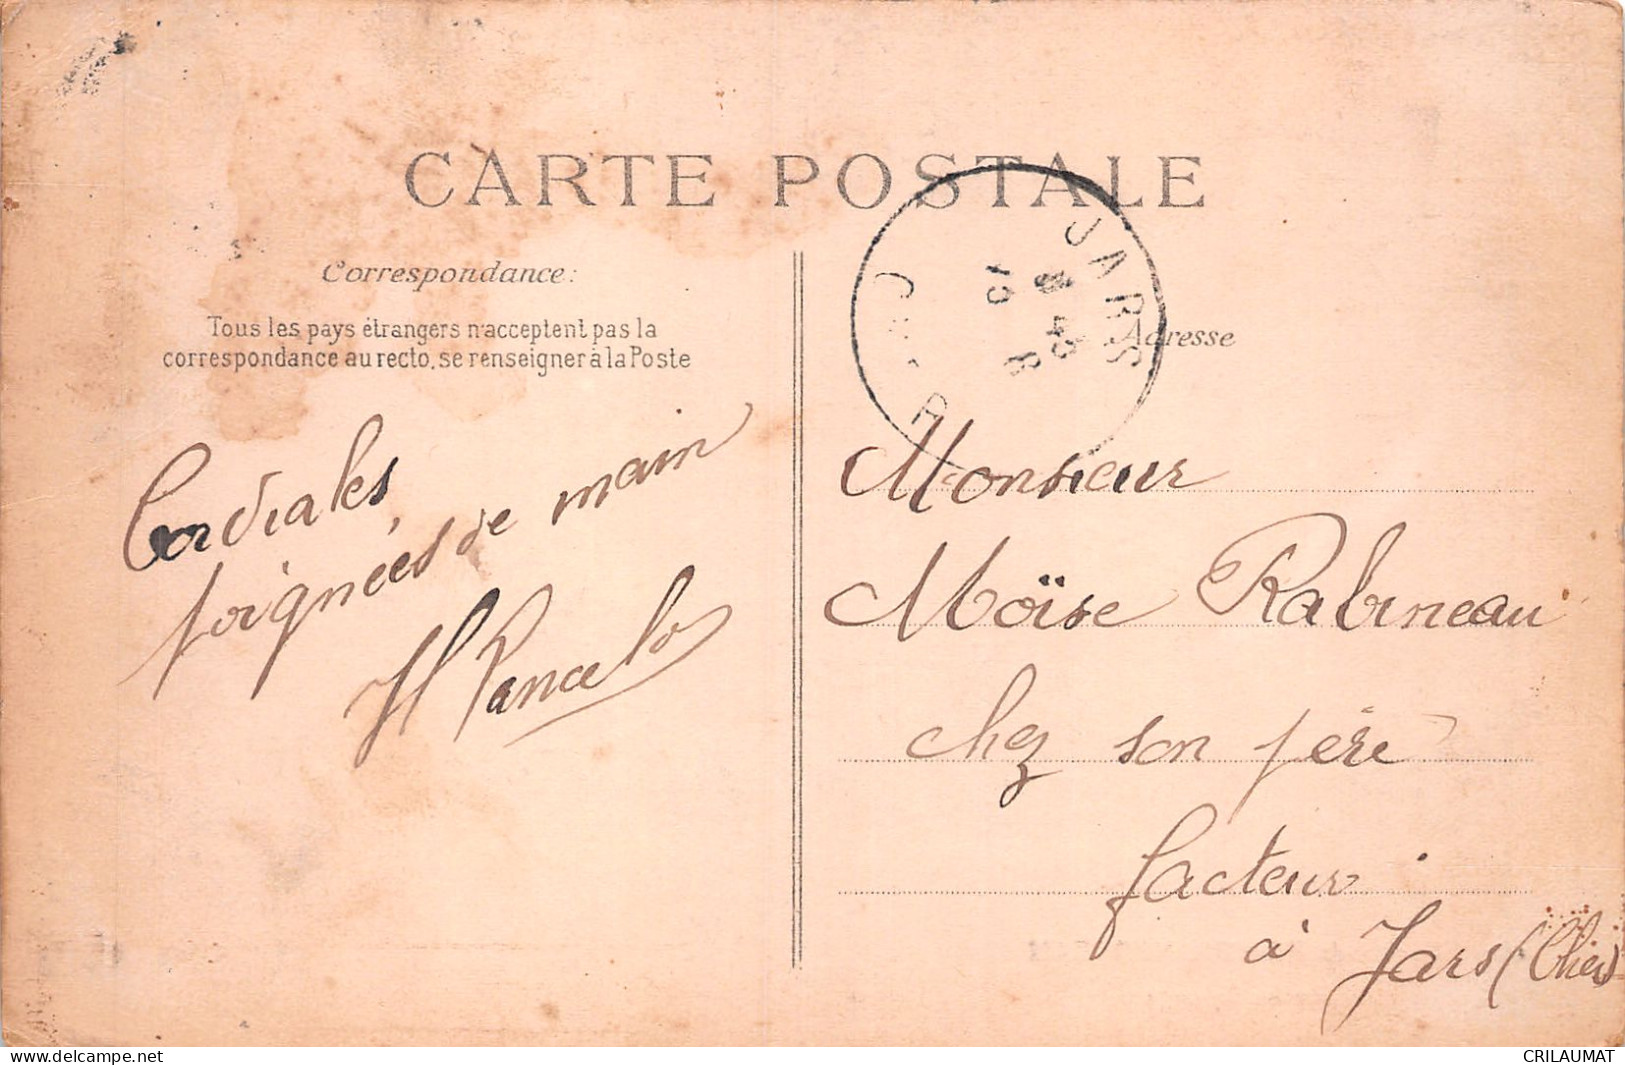 CARTE POSTALE
Correspondance:
Tous les pays étrangers n'acceptent pas la
correspondance au recto, se renseigner à la Poste
Cordiales
poignées de main
JARS
Adresse
Monsieur
Moïse Rabineau
chez son père
facteur
à Jars (Cher)
www.delcampe.net
CRILAUMAT